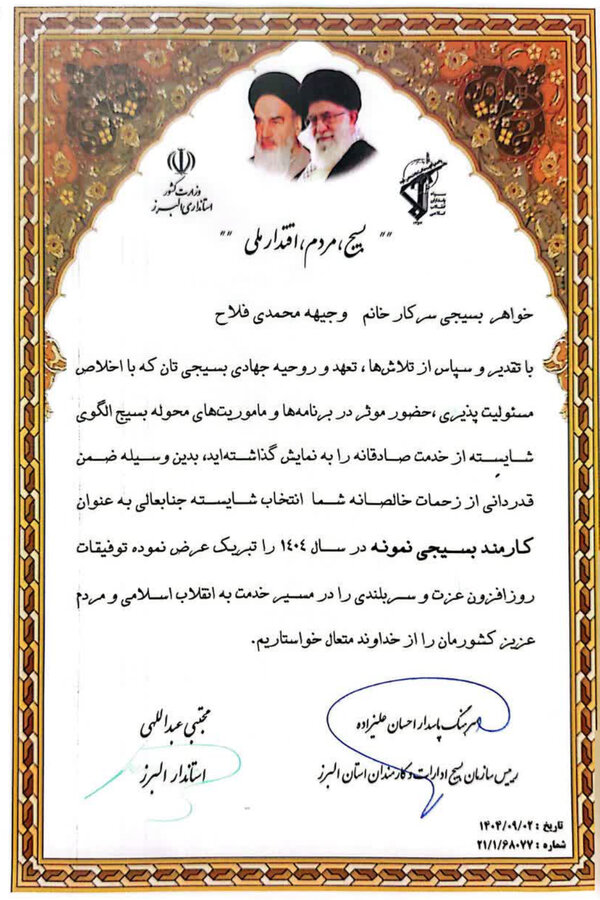 وزارت کشور
استانداری البرز
سپاه
پاسداران
انقلاب
اسلامی
"" بسیج، مردم، اقتدار ملی ""
خواهر بسیجی سرکار خانم وجیهه محمدی فلاح
با تقدیر و سپاس از تلاش‌ها، تعهد و روحیه جهادی بسیجی تان که با اخلاص
مسئولیت پذیری ،حضور موثر در برنامه‌ها و ماموریت‌های محوله بسیج الگوی
شایسته از خدمت صادقانه را به نمایش گذاشته‌اید، بدین وسیله ضمن
قدردانی از زحمات خالصانه شما انتخاب شایسته جنابعالی به عنوان
کارمند بسیجی نمونه در سال ۱۴۰۴ را تبریک عرض نموده توفیقات
روزافزون عزت و سربلندی را در مسیر خدمت به انقلاب اسلامی و مردم
عزیز کشورمان را از خداوند متعال خواستاریم.
سرهنگ پاسدار احسان علیزاده
رییس سازمان بسیج ادارات و کارمندان استان البرز
مجتبی عبداللهی
استاندار البرز
تاریخ : ۱۴۰۴/۰۹/۰۲
شماره : ۲۱/۱/۶۸۰۷۷